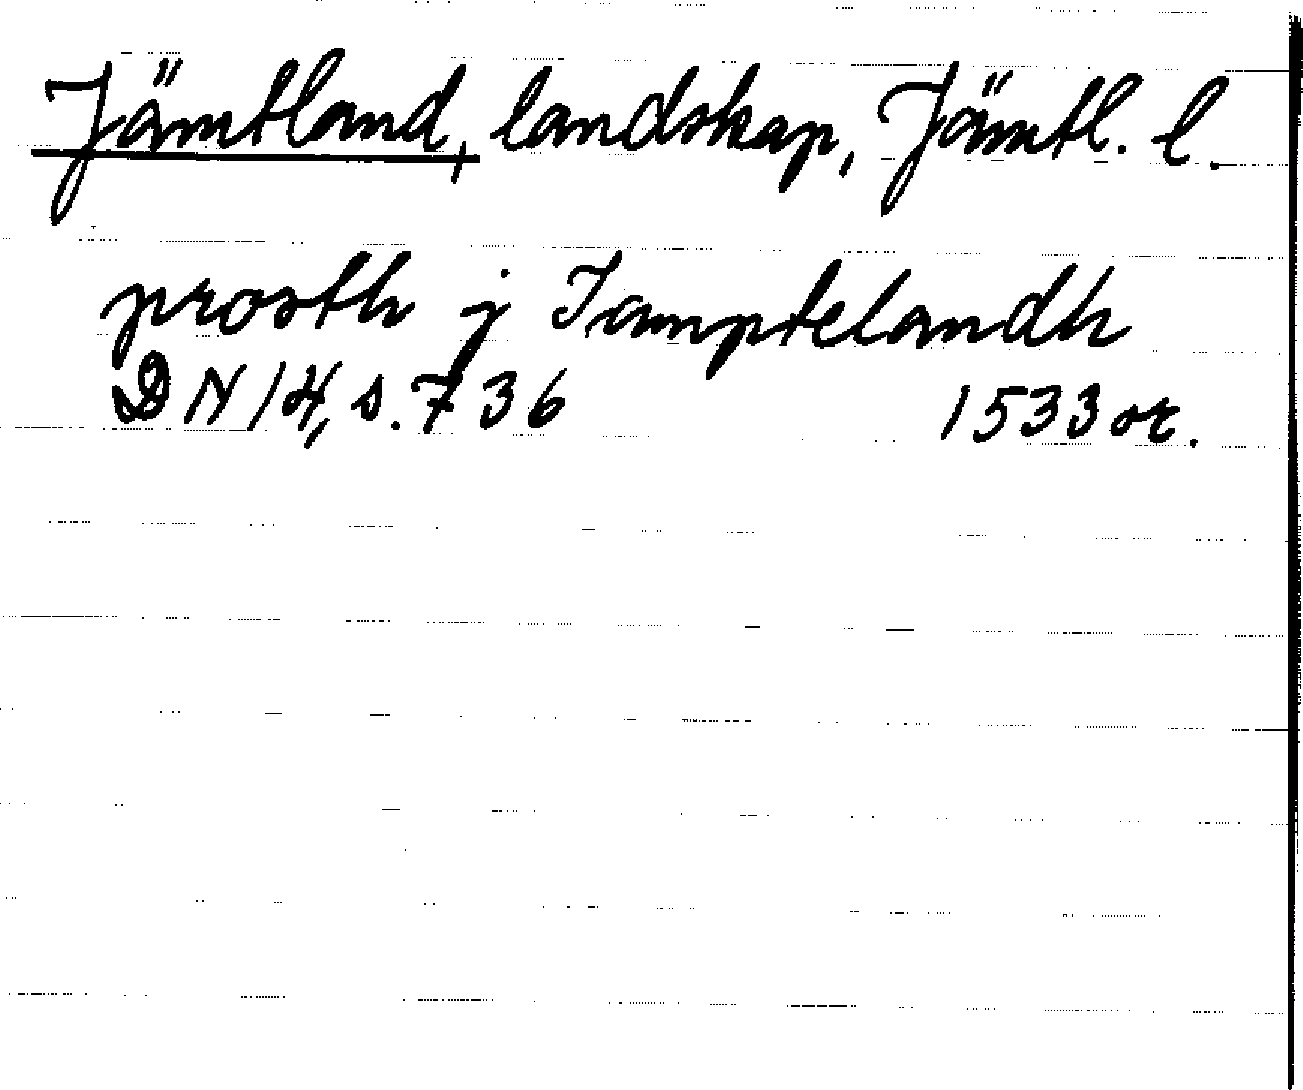 Jämtland, landskap, Jämtl. l.
prosth j Iamptelandh
DN 14, s. 736 1533 or.